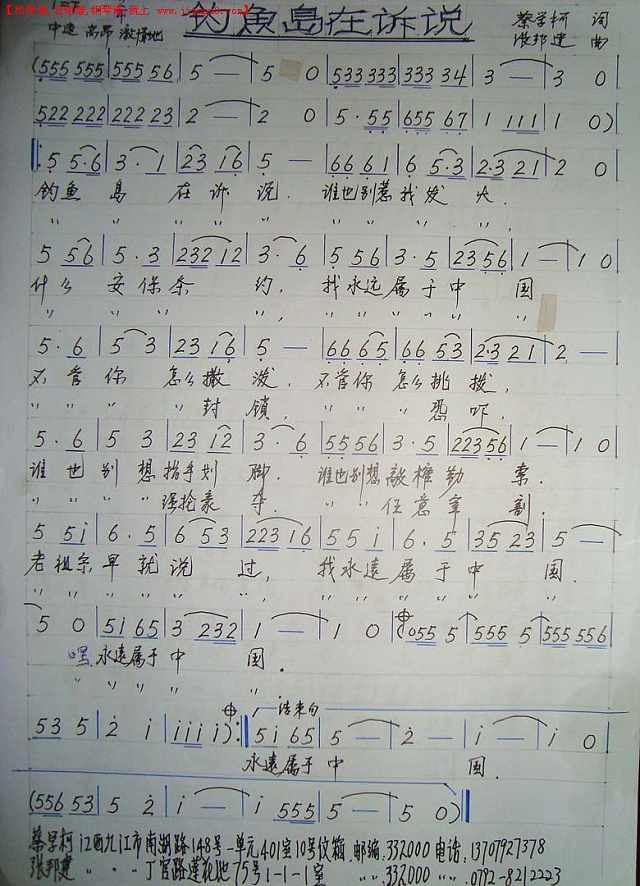 钓魚島在诉说
中速 高昂 激情地
蔡学柯 词
张邦建 曲
(555 555 | 555 56 | 5 — | 5 0 | 533 333 | 333 34 | 3 — | 3 0
522 222 | 222 23 | 2 — | 2 0 | 5·55 | 655 67 | 1 111 | 1 0)
5 5·6 | 3·1 | 23 16 | 5 — | 66 61 | 6 5·3 | 2·3 21 | 2 0
钓鱼 島 在诉 说. 谁也别惹我发火.
〃 〃 〃 〃 〃 〃 〃 〃
5 56 | 5·3 | 232 12 | 3·6 | 5 56 | 3·5 | 23 56 | 1 — | 1 0
什么 安保条 约, 我永远属于中 国
5·6 | 5 3 | 23 16 | 5 — | 66 65 | 66 53 | 2·3 21 | 2 —
不管你 怎么撒 泼. 不管你 怎么挑拨,
〃 〃 〃 封 锁, 〃 〃 〃 〃 恐吓.
5·6 | 5 3 | 23 12 | 3·6 | 55 56 | 3·5 | 223 56 | 1 — | 1 0
谁也别想指手划脚. 谁也别想敲榷勒索.
〃 〃 〃 〃 强抢豪夺. 〃 〃 任意宰割.
5 5i | 6·5 | 6 53 | 223 16 | 5 5 i | 6·5 | 35 23 | 5 —
老祖宗早就说 过, 我永遠属于中 国.
5 0 | 5i 65 | 3 232 | 1 — | 1 0 | (055 5 | 555 5 | 555 556
嘿 永遠属于 中 国.
53 5 | 2 i | i i i i i) :‖ 5i 65 | 5 — | 2 — | i — | i 0
结束句
永遠属于 中 国.
(556 53 | 5 2 | i — | i 555 | 5 — | 5 0)‖
蔡学柯 江西九江市南湖路148号一单元401室10号信箱.邮编.332000电话.13707927378
张邦建 〃 〃 丁官路蓮花池75号1-1-1室 〃 332000 〃 0792-8212223